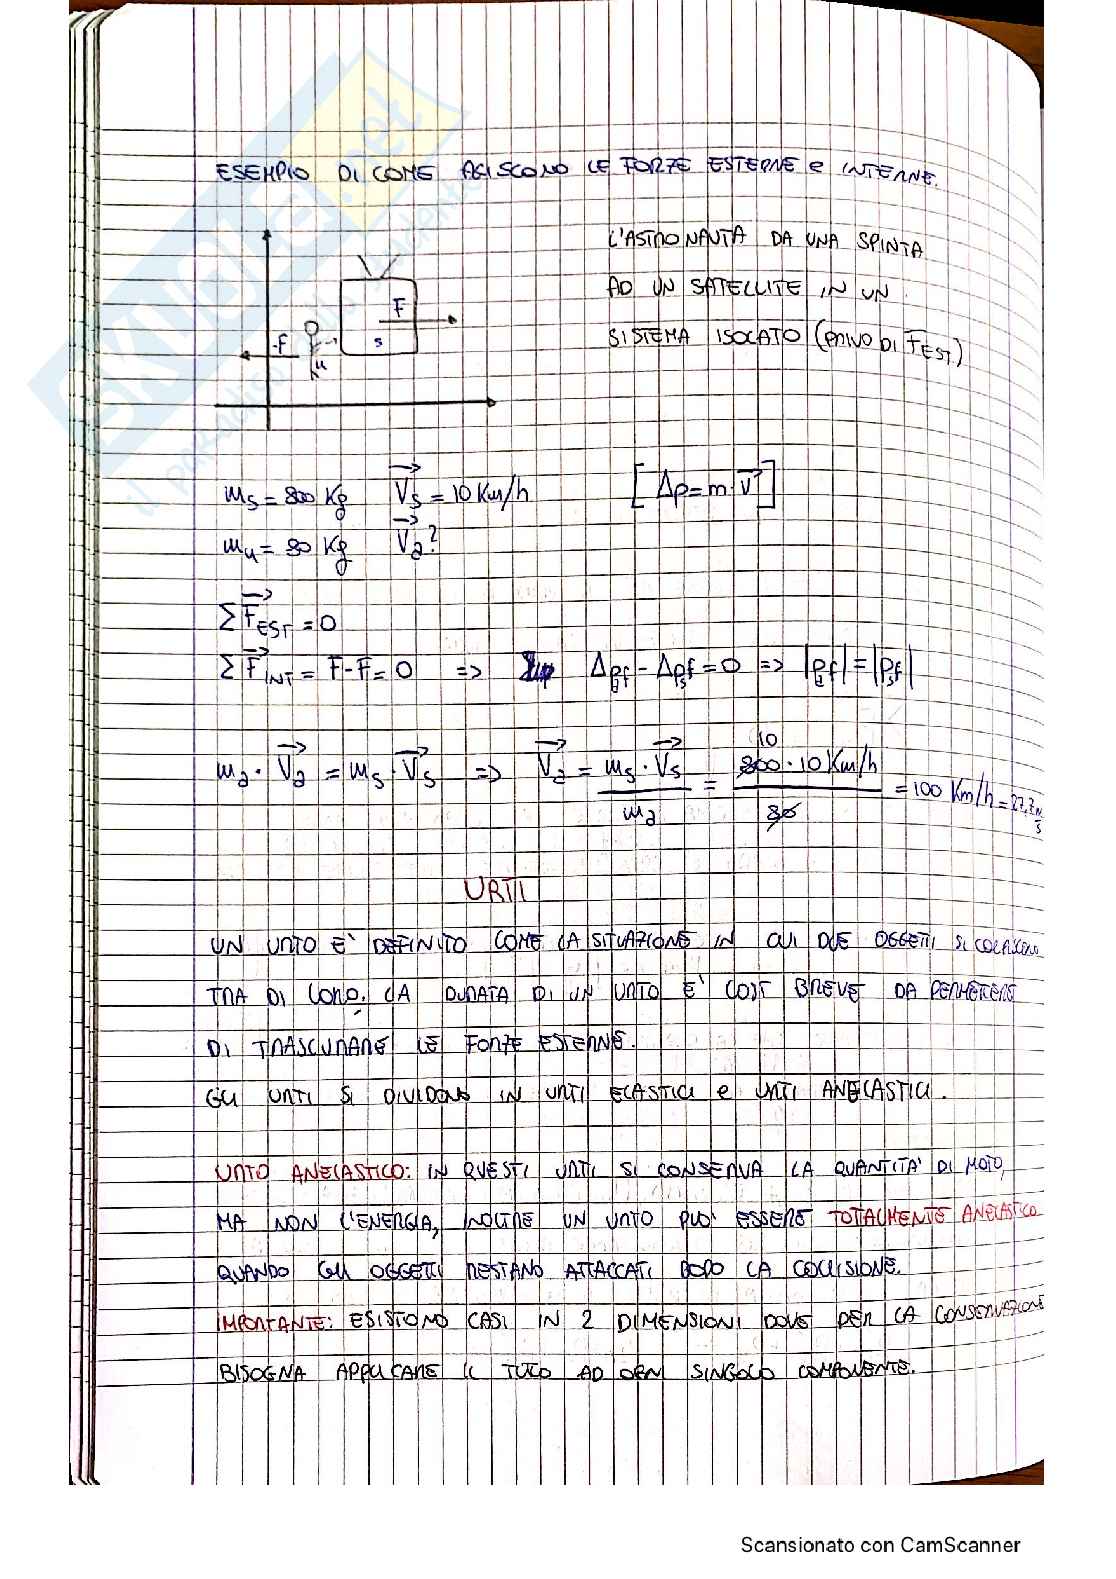 ESEMPIO DI COME AGISCONO LE FORZE ESTERNE e INTERNE.
L'ASTRONAUTA DA UNA SPINTA
AD UN SATELLITE IN UN
SISTEMA ISOLATO (PRIVO DI F EST)
F
-F
S
u
mS = 800 Kg    VS = 10 Km/h    [Δp = m·V]
mu = 80 Kg    Va?
ΣF EST = 0
ΣF INT = F - F = 0 => Δpaf - Δpsf = 0 => |paf| = |psf|
ma · Va = ms · Vs => Va = ms · Vs / ma = 800 · 10 Km/h / 80 = 100 Km/h = 27,7 m/s
10
URTI
UN URTO E' DEFINITO COME LA SITUAZIONE IN CUI DUE OGGETTI SI COLPISCONO
TRA DI LORO. LA DURATA DI UN URTO E' COSI BREVE DA PERMETTERE
DI TRASCURARE LE FORZE ESTERNE.
GLI URTI SI DIVIDONO IN URTI ELASTICI e URTI ANELASTICI.
URTO ANELASTICO: IN QUESTI URTI SI CONSERVA LA QUANTITA' DI MOTO,
MA NON L'ENERGIA, INOLTRE UN URTO PUO' ESSERE TOTALMENTE ANELASTICO
QUANDO GLI OGGETTI RESTANO ATTACCATI DOPO LA COLLISIONE.
IMPORTANTE: ESISTONO CASI IN 2 DIMENSIONI DOVE PER LA CONSERVAZIONE
BISOGNA APPLICARE IL TUTTO AD OGNI SINGOLO COMPONENTE.
SKUOLA.net
il paradiso dello studente
Scansionato con CamScanner